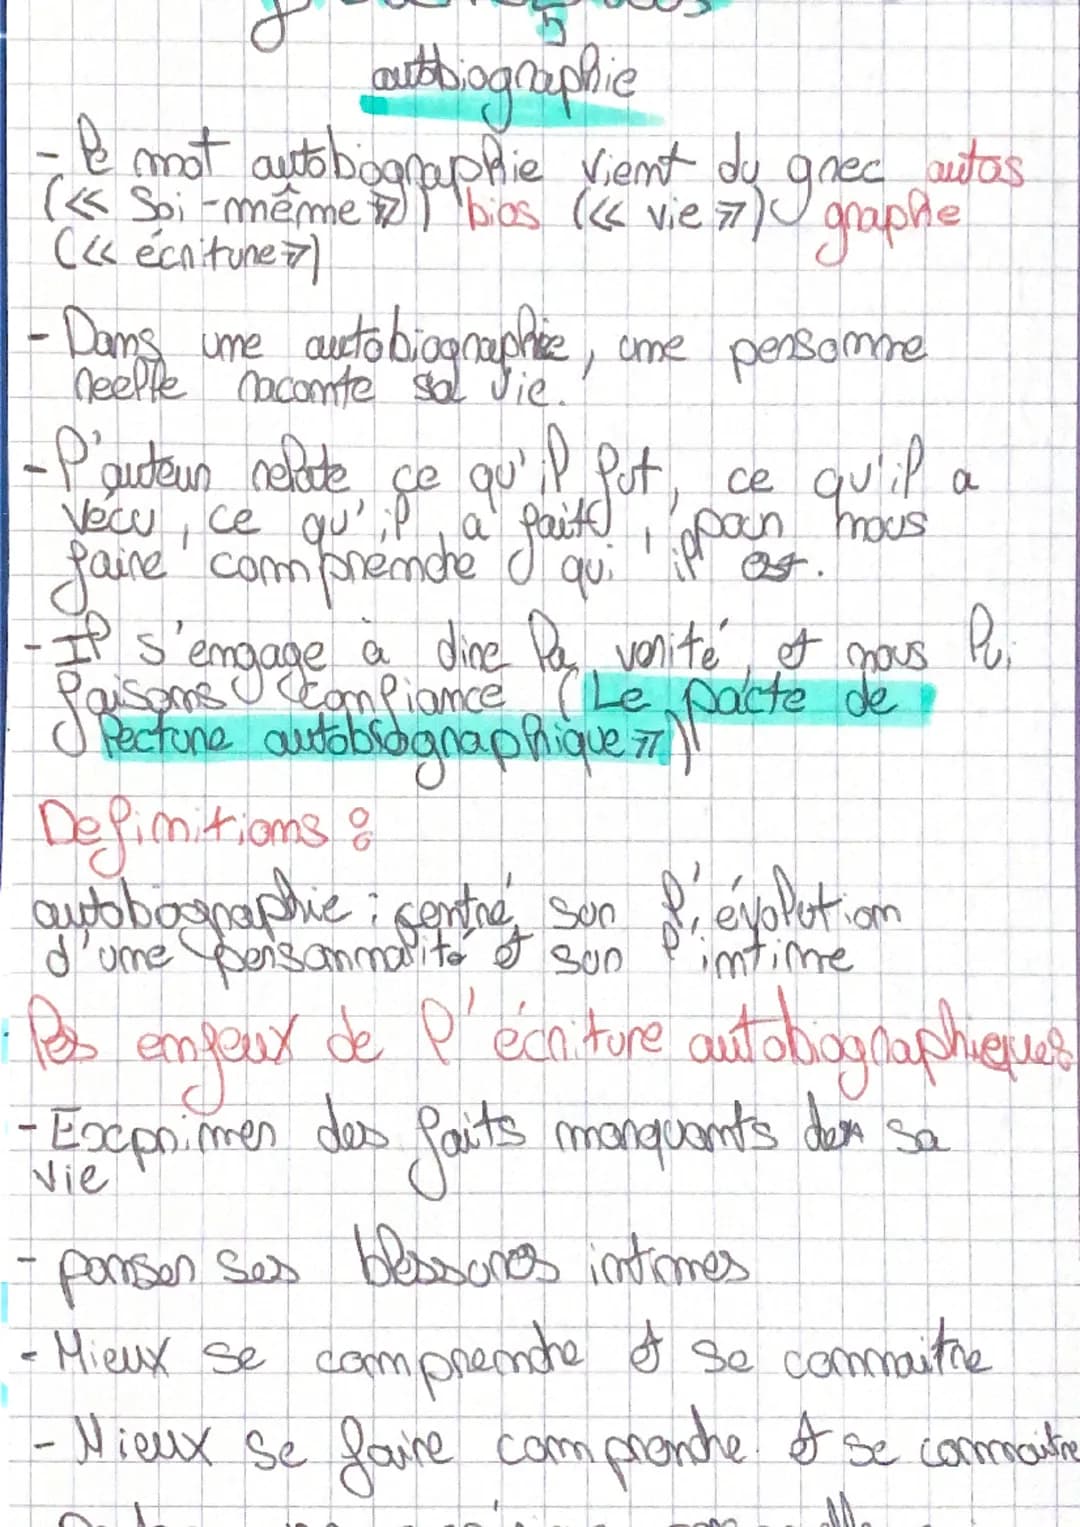 autobiographie
- le mot autobiographie vient du grec autos
(<< Soi-même >>) bios (<< vie >>) graphe
(<< écriture >>)
- Dans une autobiographie, une personne
reelle raconte sa vie.
- l'auteur relate ce qu'il fut, ce qu'il a
vécu, ce qu'il a fait, pour nous
faire comprendre qui il est.
- Il s'engage à dire la vérité et nous lui
faisons confiance (Le pacte de
lecture autobiographique >>)
Definitions :
autobiographie : centré sur l'évolution
d'une personnalité et sur l'intime
les enjeux de l'écriture autobiographiques
- Exprimer des faits marquants de sa
vie
- panser ses blessures intimes
- Mieux se comprendre et se connaitre
- Mieux se faire comprendre et se connaitre